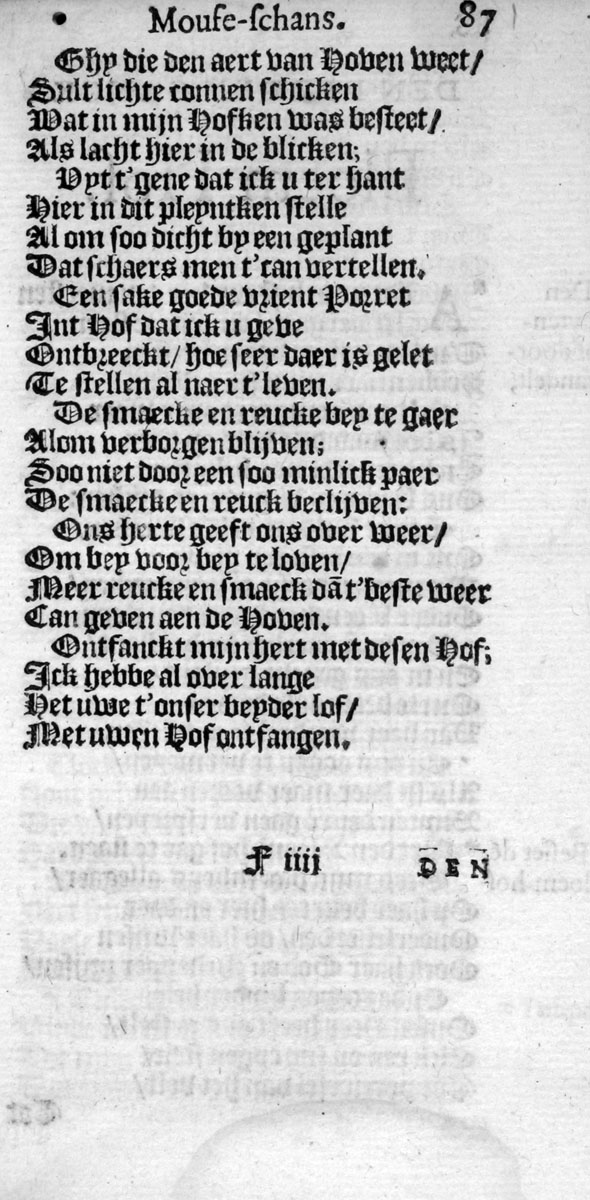 Mouse-schans. 87
Ghy die den aert van Hoven weet/
Sult lichte connen schicken
Wat in mijn Hofken was besteet/
Als lacht hier in de blicken;
Vyt t'gene dat ick u ter hant
Hier in dit pleyntken stelle
Al om soo dicht by een geplant
Dat schaers men t'can vertellen.
Een sake goede vrient Porret
Int Hof dat ick u geve
Ontbreeckt/ hoe seer daer is gelet
Te stellen al naer t'leven.
De smaecke en reucke bey te gaer
Alom verborgen blijven;
Soo niet door een soo minlick paer
De smaecke en reuck beclijven:
Ons herte geeft ons over weer/
Om bey voor bey te loven/
Meer reucke en smaeck dã t'beste weer
Can geven aen de Hoven.
Ontfanckt mijn hert met desen Hof;
Ick hebbe al over lange
Het uwe t'onser beyder lof/
Met uwen Hof ontfangen.
F iiij DEN